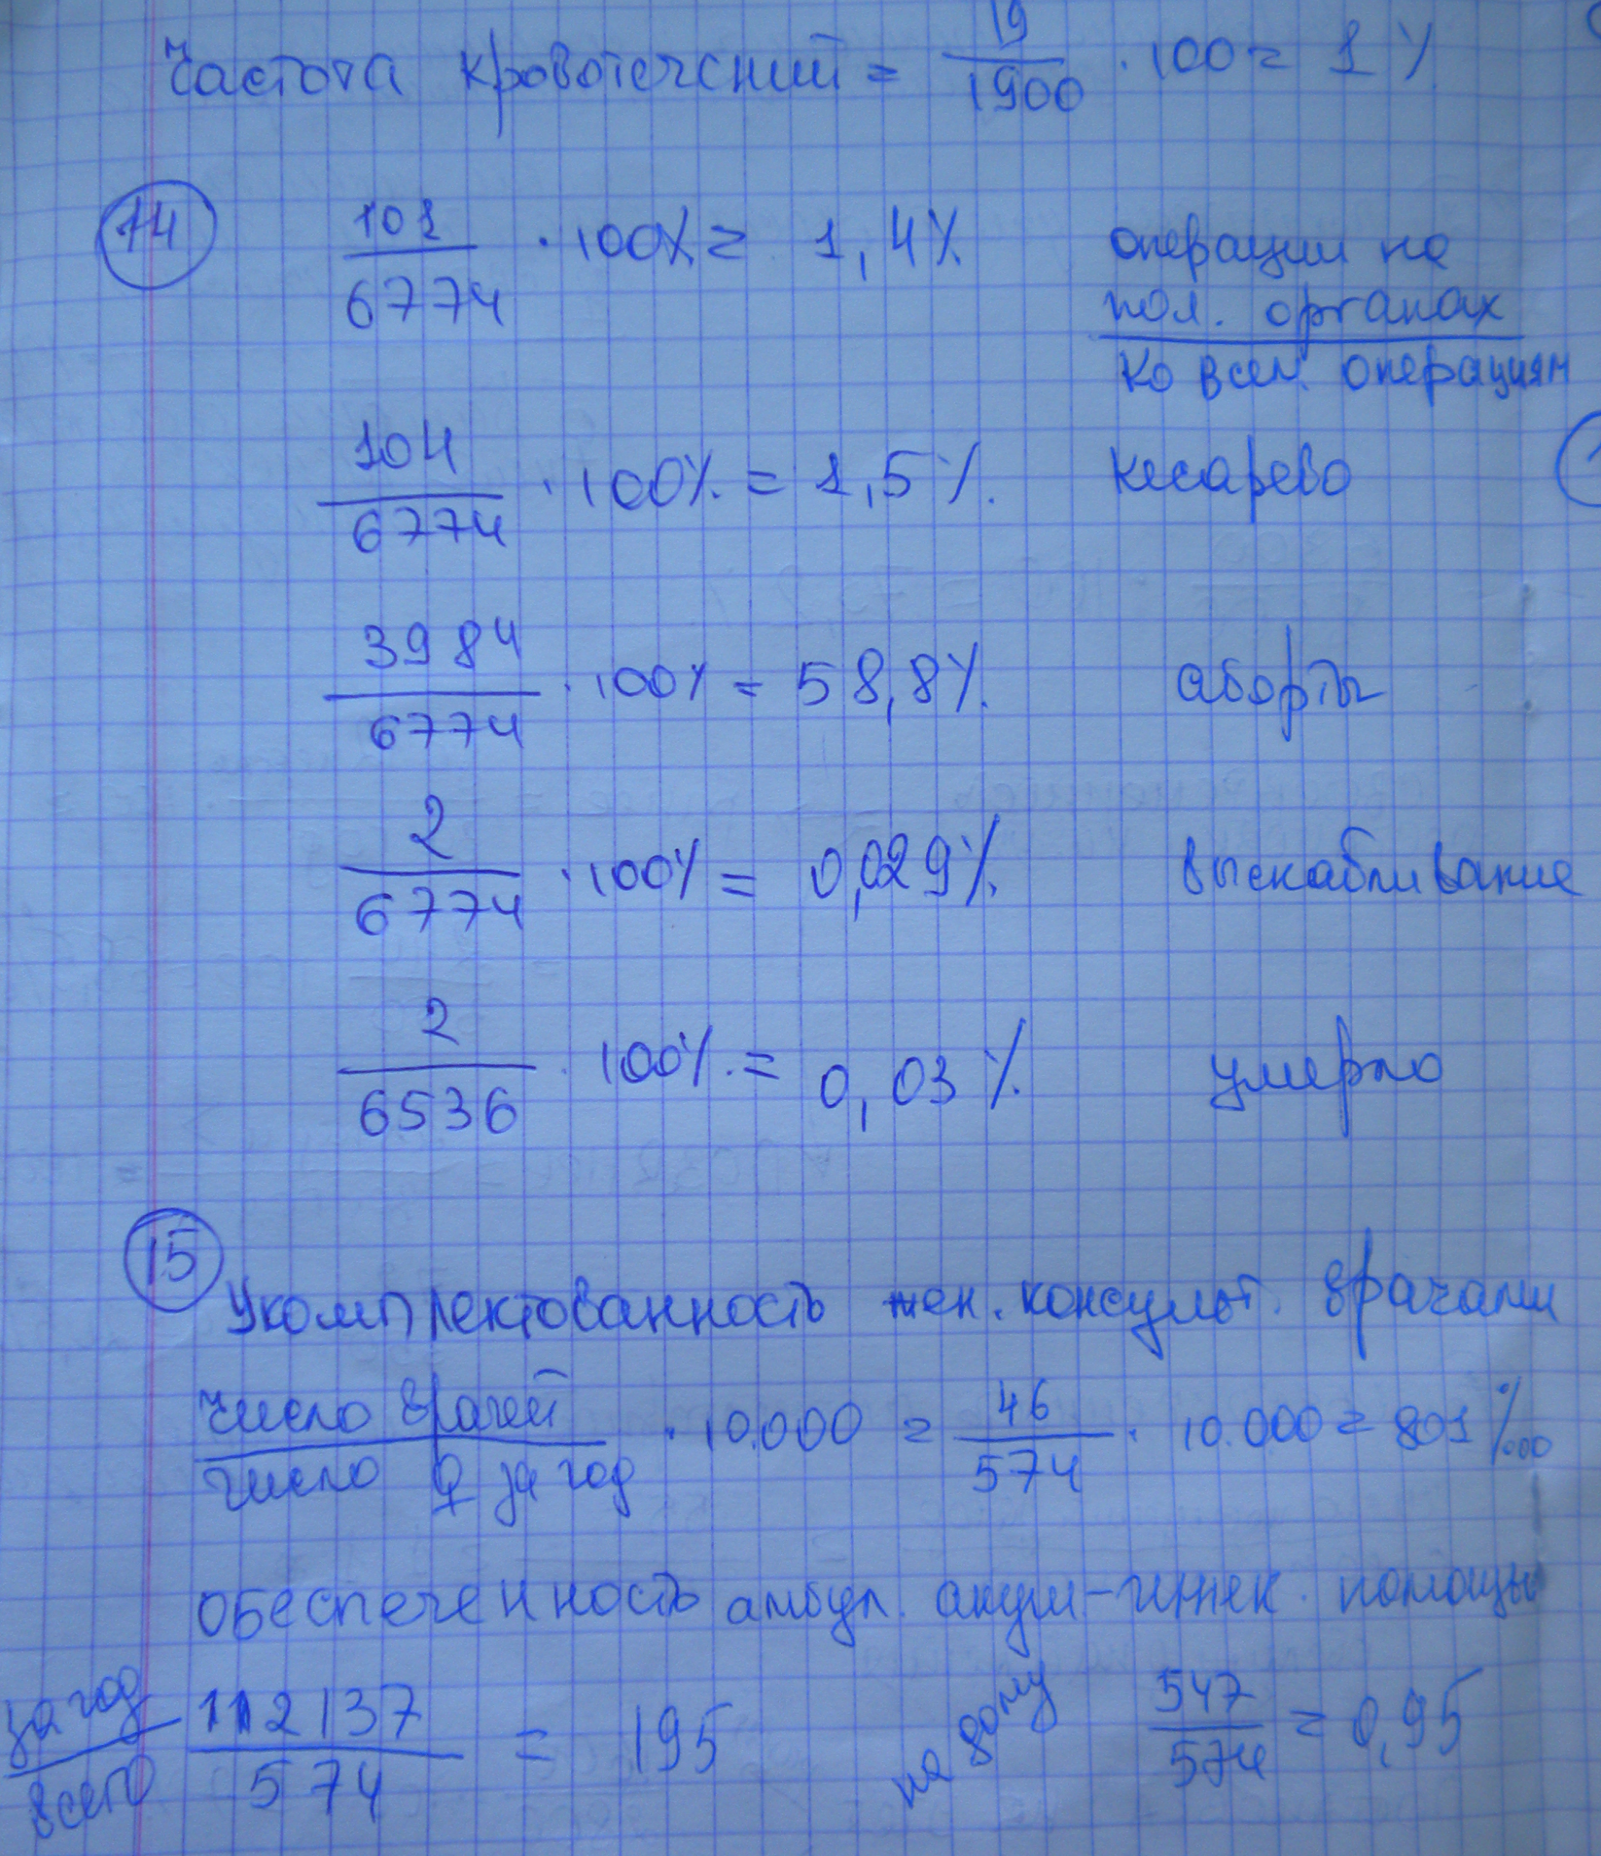 Частота кровотечений = 19/1900 · 100 = 1%
14
101/6774 · 100% = 1,4% операции на
пол. органах
ко всем. операциям
104/6774 · 100% = 1,5% кесарево
3984/6774 · 100% = 58,8% аборты
2/6774 · 100% = 0,029% выскабливание
2/6536 · 100% = 0,03% умерло
15
Укомплектованность жен. консульт. врачами
число врачей/число ♀ за год · 10.000 = 46/574 · 10.000 = 801‱
обеспеченность амбул. акуш-гинек. помощью
за год/всего 112137/574 = 195 на дому 547/574 = 0,95